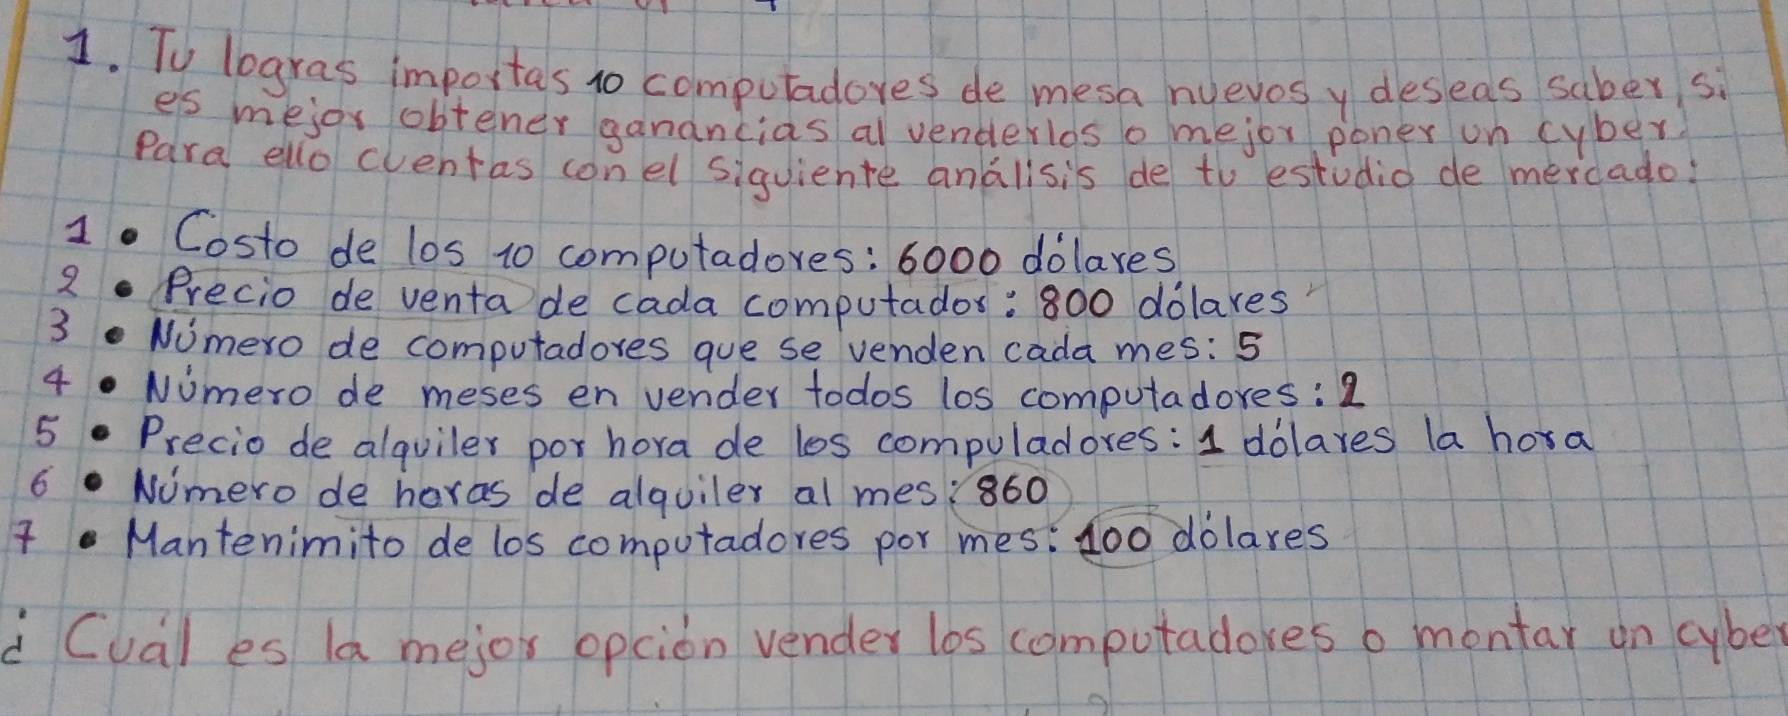 1. Tu logras importas 10 computadores de mesa nuevos y deseas saber, si
es mejor obtener ganancias al venderlos o mejor poner un cyber
Para ello cuentas con el siguiente análisis de tu estudio de mercado:
1 • Costo de los 10 computadores: 6000 dólares
2 • Precio de venta de cada computador: 800 dólares
3 • Número de computadores que se venden cada mes: 5
4 • Número de meses en vender todos los computadores: 2
5 • Precio de alquiler por hora de los compuladores: 1 dólares la hora
6 • Número de horas de alquiler al mes: 860
7 • Mantenimito de los computadores por mes: 100 dólares
¿ Cuál es la mejor opción vender los computadores o montar un cyber